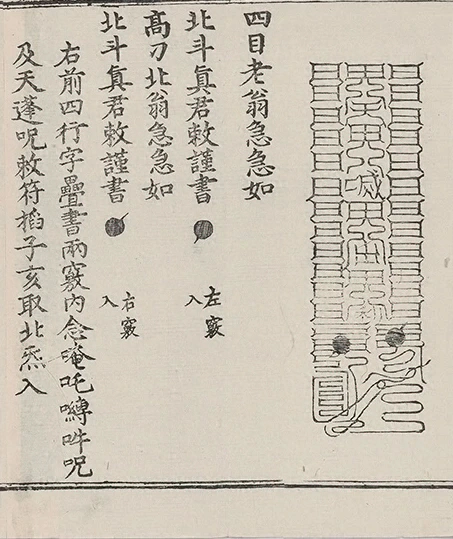 四目老翁急急如
北斗真君敕謹書
左竅入
高刀北翁急急如
北斗真君敕謹書
右竅入
右前四行字疊書兩竅內念唵吒𠸪吽呪
及天蓬呪敕符掐子亥取北炁入